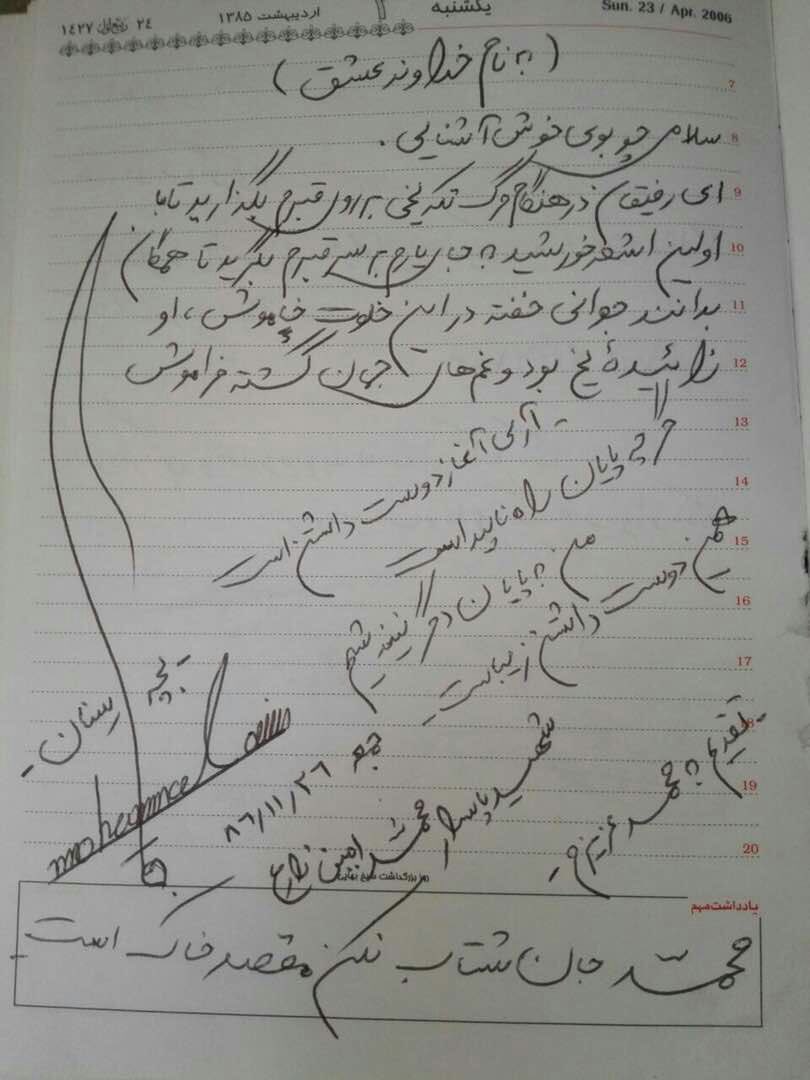 Sun. 23 / Apr. 2006
یکشنبه
اردیبهشت ۱۳۸۵
۲۴ ربیع‌الاول ۱۴۲۷
( به نام خداوند عشق )
سلامی چو بوی خوش آشنایی .
ای رفیقان در هنگام مرگ تکه یخی بر روی قبرم بگذارید تا با
اولین اشعه خورشید به جای یارم بر سر قبرم بگرید تا همگان
بدانند جوانی خفته در این خلوت خاموش ، او
زائیدهٔ یخ بود و غم‌های جهان گشته فراموش
- آری آغاز دوست داشتن است
گرچه پایان راه ناپیداست
من به پایان دگر نیندیشم
همین دوست داشتن زیباست -
7
8
9
10
11
12
13
14
15
16
17
18
19
20
تقدیم به محمد عزیزم -
شهید پاسدار محمد امین
جمعه ۸۶/۱۱/۲۶
یادداشت مهم
محمد جان شتاب نکن مقصد خاک است -